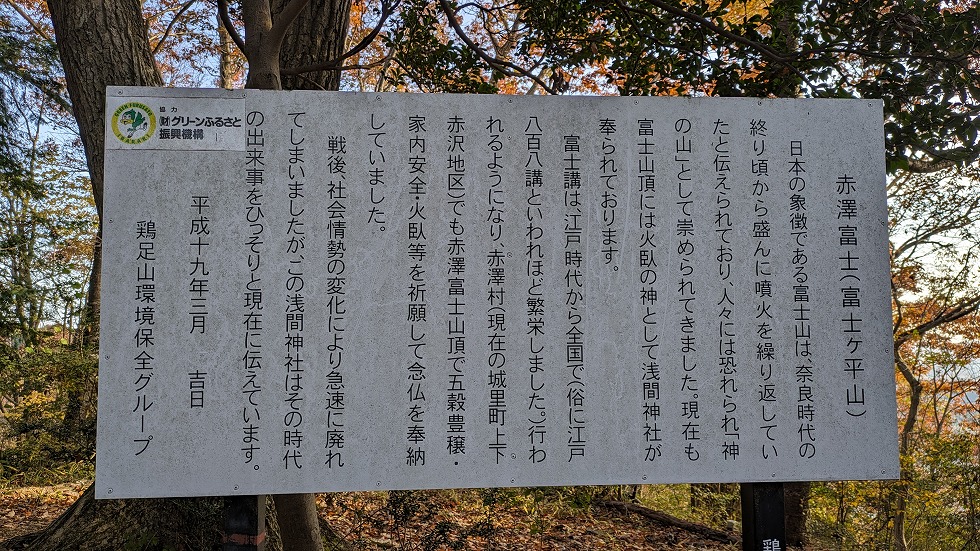 赤澤富士(富士ケ平山)
日本の象徴である富士山は、奈良時代の
終り頃から盛んに噴火を繰り返してい
たと伝えられており、人々には恐れられ「神
の山」として崇められてきました。現在も
富士山頂には火臥の神として浅間神社が
奉られております。
富士講は江戸時代から全国で(俗に江戸
八百八講といわれほど繁栄しました。)行わ
れるようになり、赤澤村(現在の城里町上下
赤沢地区)でも赤澤富士山頂で五穀豊穣・
家内安全・火臥等を祈願して念仏を奉納
していました。
戦後、社会情勢の変化により急速に廃れ
てしまいましたが、この浅間神社はその時代
の出来事をひっそりと現在に伝えています。
平成十九年三月 吉日
鶏足山環境保全グループ
協力
(財)グリーンふるさと
振興機構
鶏